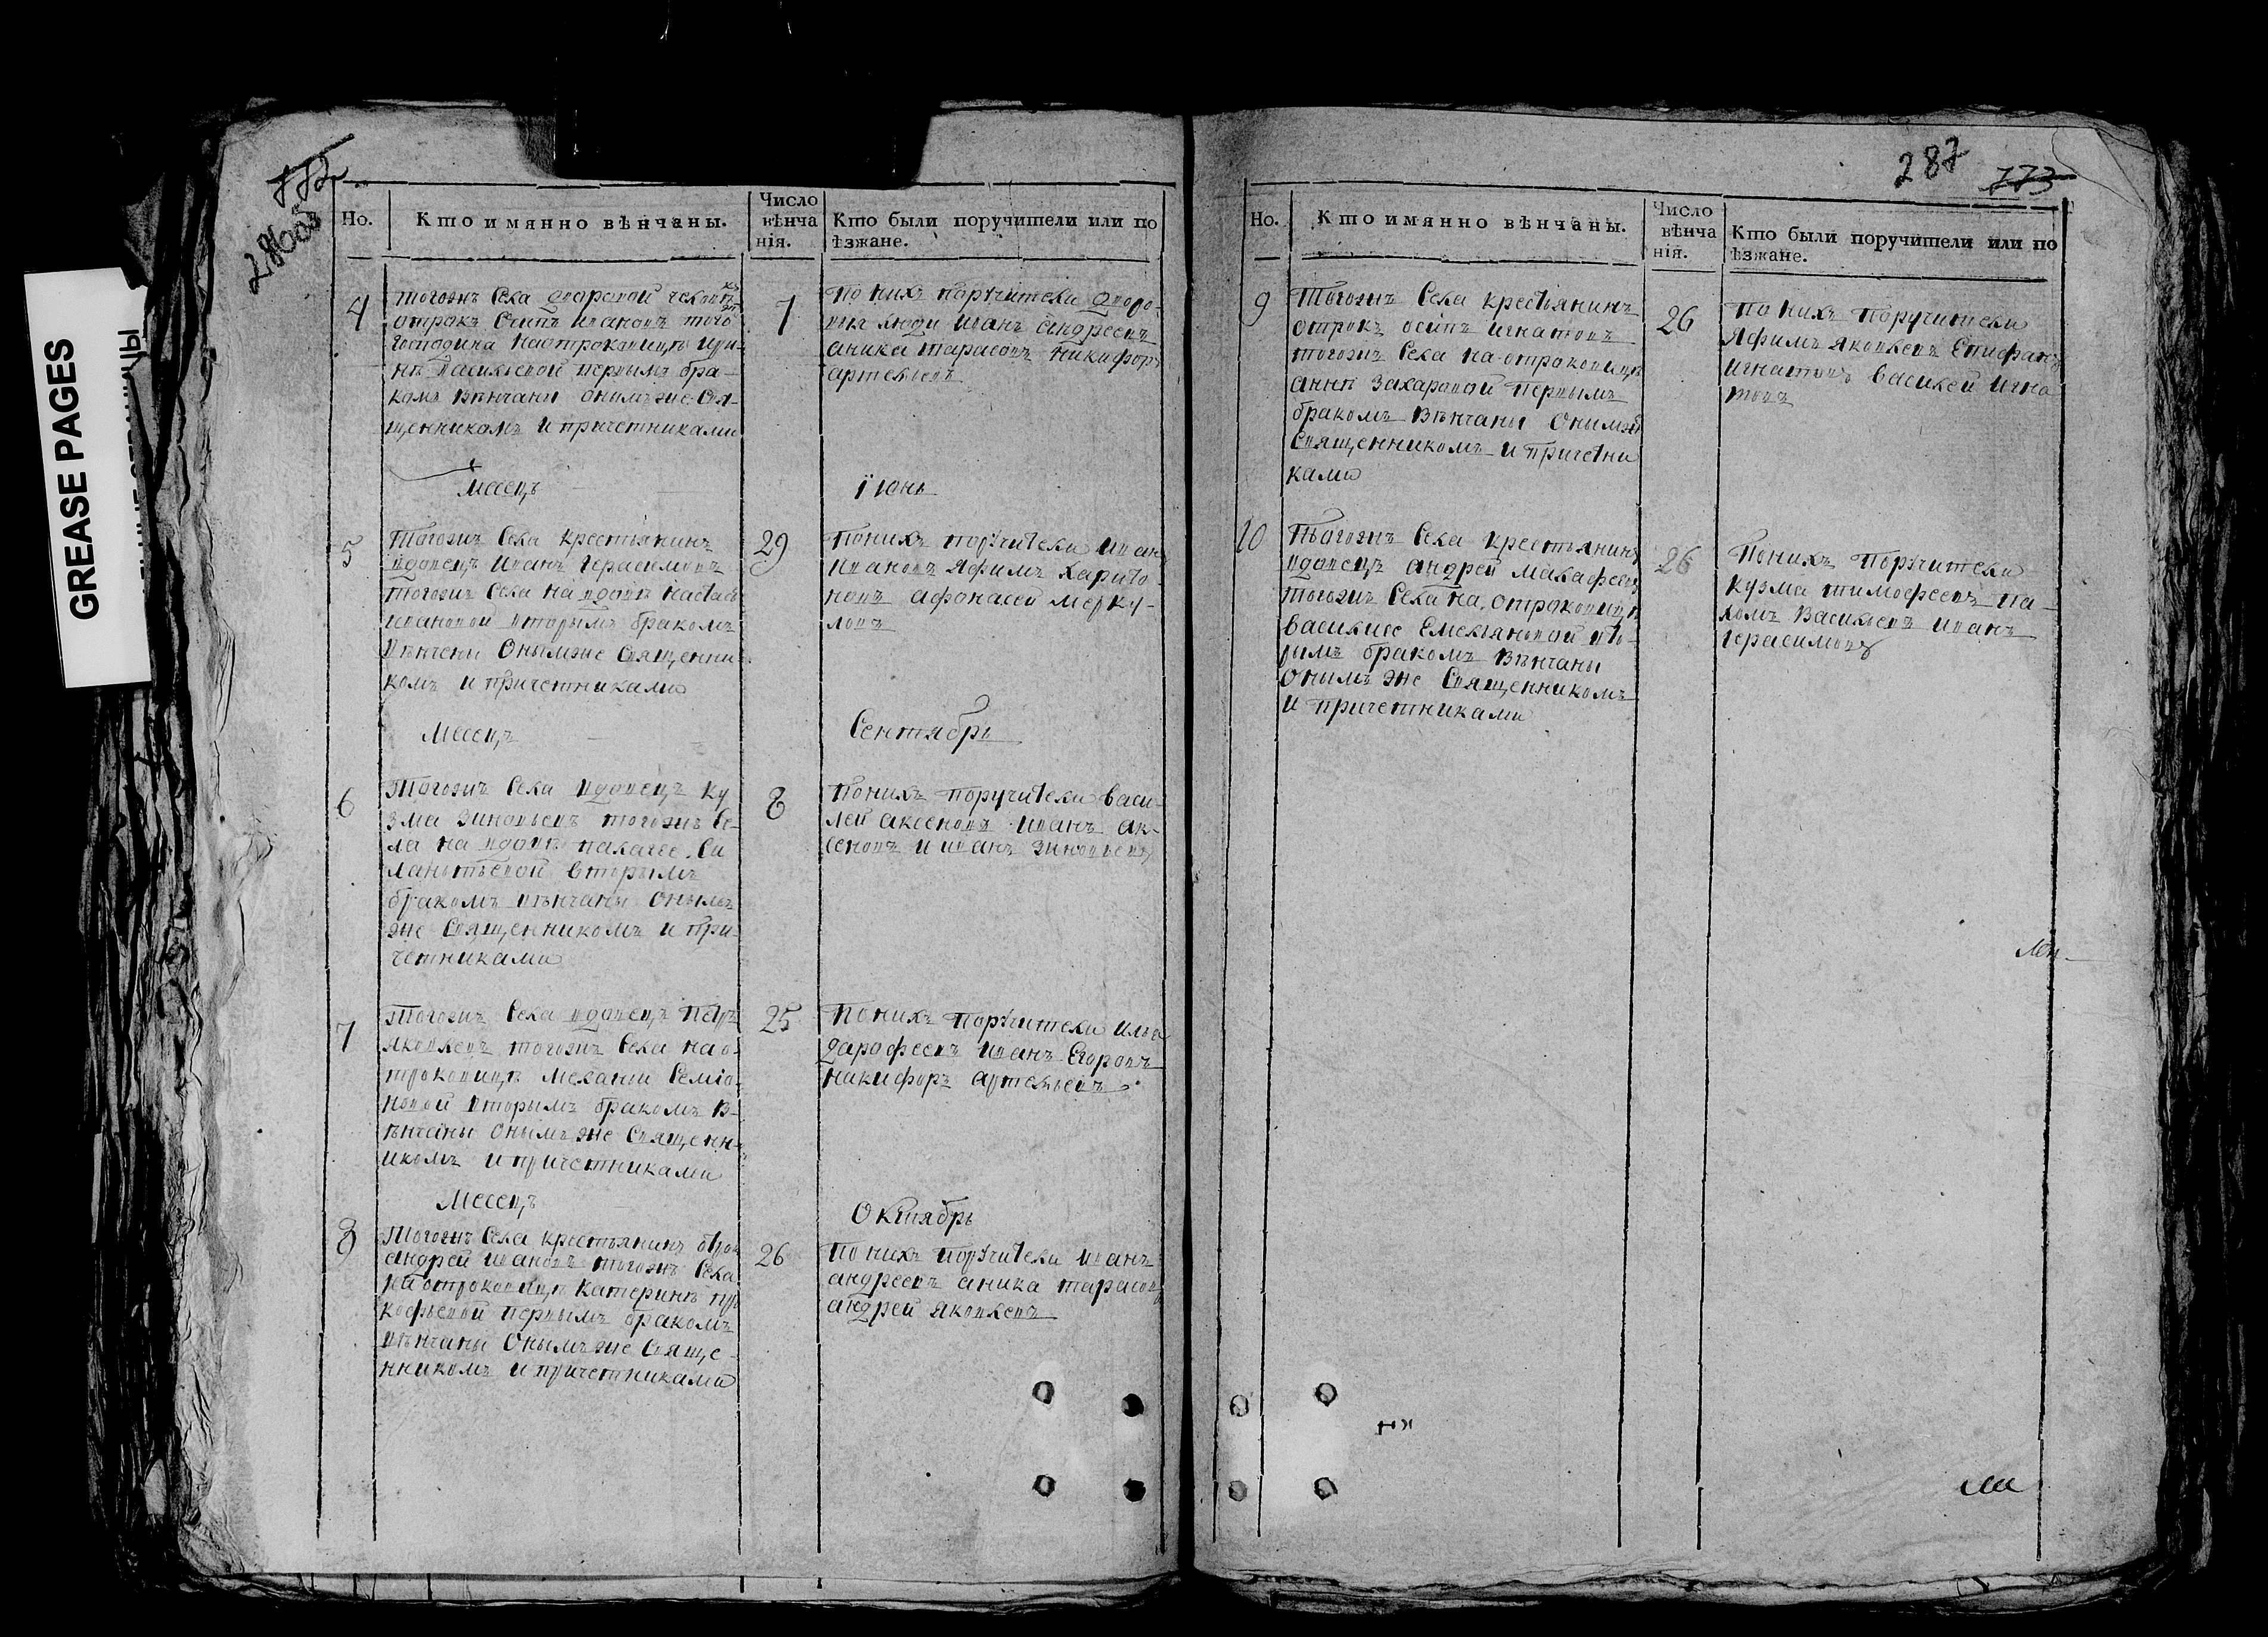 287
773
286об
GREASE PAGES
Но.
Кто имянно вѣнчаны.
Число
вѣнча
нія.
Кто были поручители или по
ѣзжане.
4
тогожъ Села дваравой человѣкъ
отрокъ Осипъ Ивановъ того
Господина наотроковицѣ Ири-
нѣ Васильевой первымъ бра-
комъ вѣнчаны онымъже Свя-
щенникомъ и причетниками
7
по нихъ поручители дворо-
выя люди Иванъ андреевъ
аника тарасовъ никифоръ
артемьевъ
Месецъ
Їюнь
5
Тогожъ Села крестьянинъ
вдовецъ Иванъ Герасимовъ
тогожъ Села на вдовѣ настасье
вторымъ бракомъ
вѣнчены Онымже Священни
комъ и причетниками
29
По нихъ поручители Иван
Ивановъ Яфимъ Харито
новъ афонасей мерку-
ловъ
Месецъ
Сентябрь
6
Тогожъ Села вдовецъ Ку
зма Зиновьевъ тогожъ Се-
ла на вдовѣ палагее Си
лантьевой вторымъ
бракомъ вѣнчаны Онымъ
же Священникомъ и при-
четниками
8
По нихъ поручители Васи-
лей аксеновъ Иванъ ак-
сеновъ и иванъ Зиновьевъ
7
Тогожъ Села вдовецъ Петръ
яковлевъ тогожъ Села на о-
троковицѣ Мелании Семіо-
новой вторымъ бракомъ в-
ѣнчаны Онымъже Священн-
икомъ и причетниками
25
По нихъ поручители Илья
дарофеевъ Иванъ Егоровъ
никифоръ артемьевъ
Месецъ
Октябрь
8
Тогожъ Села крестьянинъ отрок
андрей ивановъ тогожъ Села
на отроковицѣ Катеринѣ пр
кофьевой первымъ бракомъ
вѣнчаны Онымъже Свяще-
нникомъ и причетниками
26
По нихъ поручители Иванъ
андреевъ аника тарасовъ
андрей яковлевъ
Но.
Кто имянно вѣнчаны.
Число
вѣнча
нія.
Кто были поручители или по
ѣзжане.
9
Тогожъ Села крестьянинъ
отрокъ осипъ игнатовъ
тогожъ Села на отроковицѣ
аннѣ Захаровой первымъ
бракомъ вѣнчаны Онымже
Священникомъ и причетни
ками
26
По нихъ поручители
Яфимъ яковлевъ Епифанъ
игнатовъ василей игна
товъ
10
Тогожъ Села крестьянинъ
вдовецъ андрей малафеевъ
тогожъ Села на отроковицѣ
василисе Емельяновой вто-
рымъ бракомъ вѣнчаны
Онымъ же Священникомъ
и причетниками
26
По нихъ поручители
кузма тимофеевъ па-
хомъ Васильевъ иванъ
герасимовъ